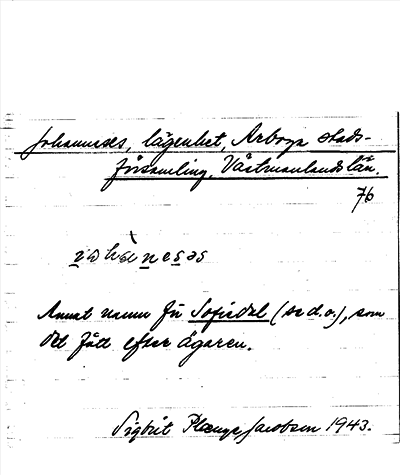 Johanneses, lägenhet, Arboga stads-
församling, Västmanlands län.
76
Annat namn för Sofiedel (se d.o.), som
det fått efter ägaren.
Sigbrit Plænge Jacobson 1943.